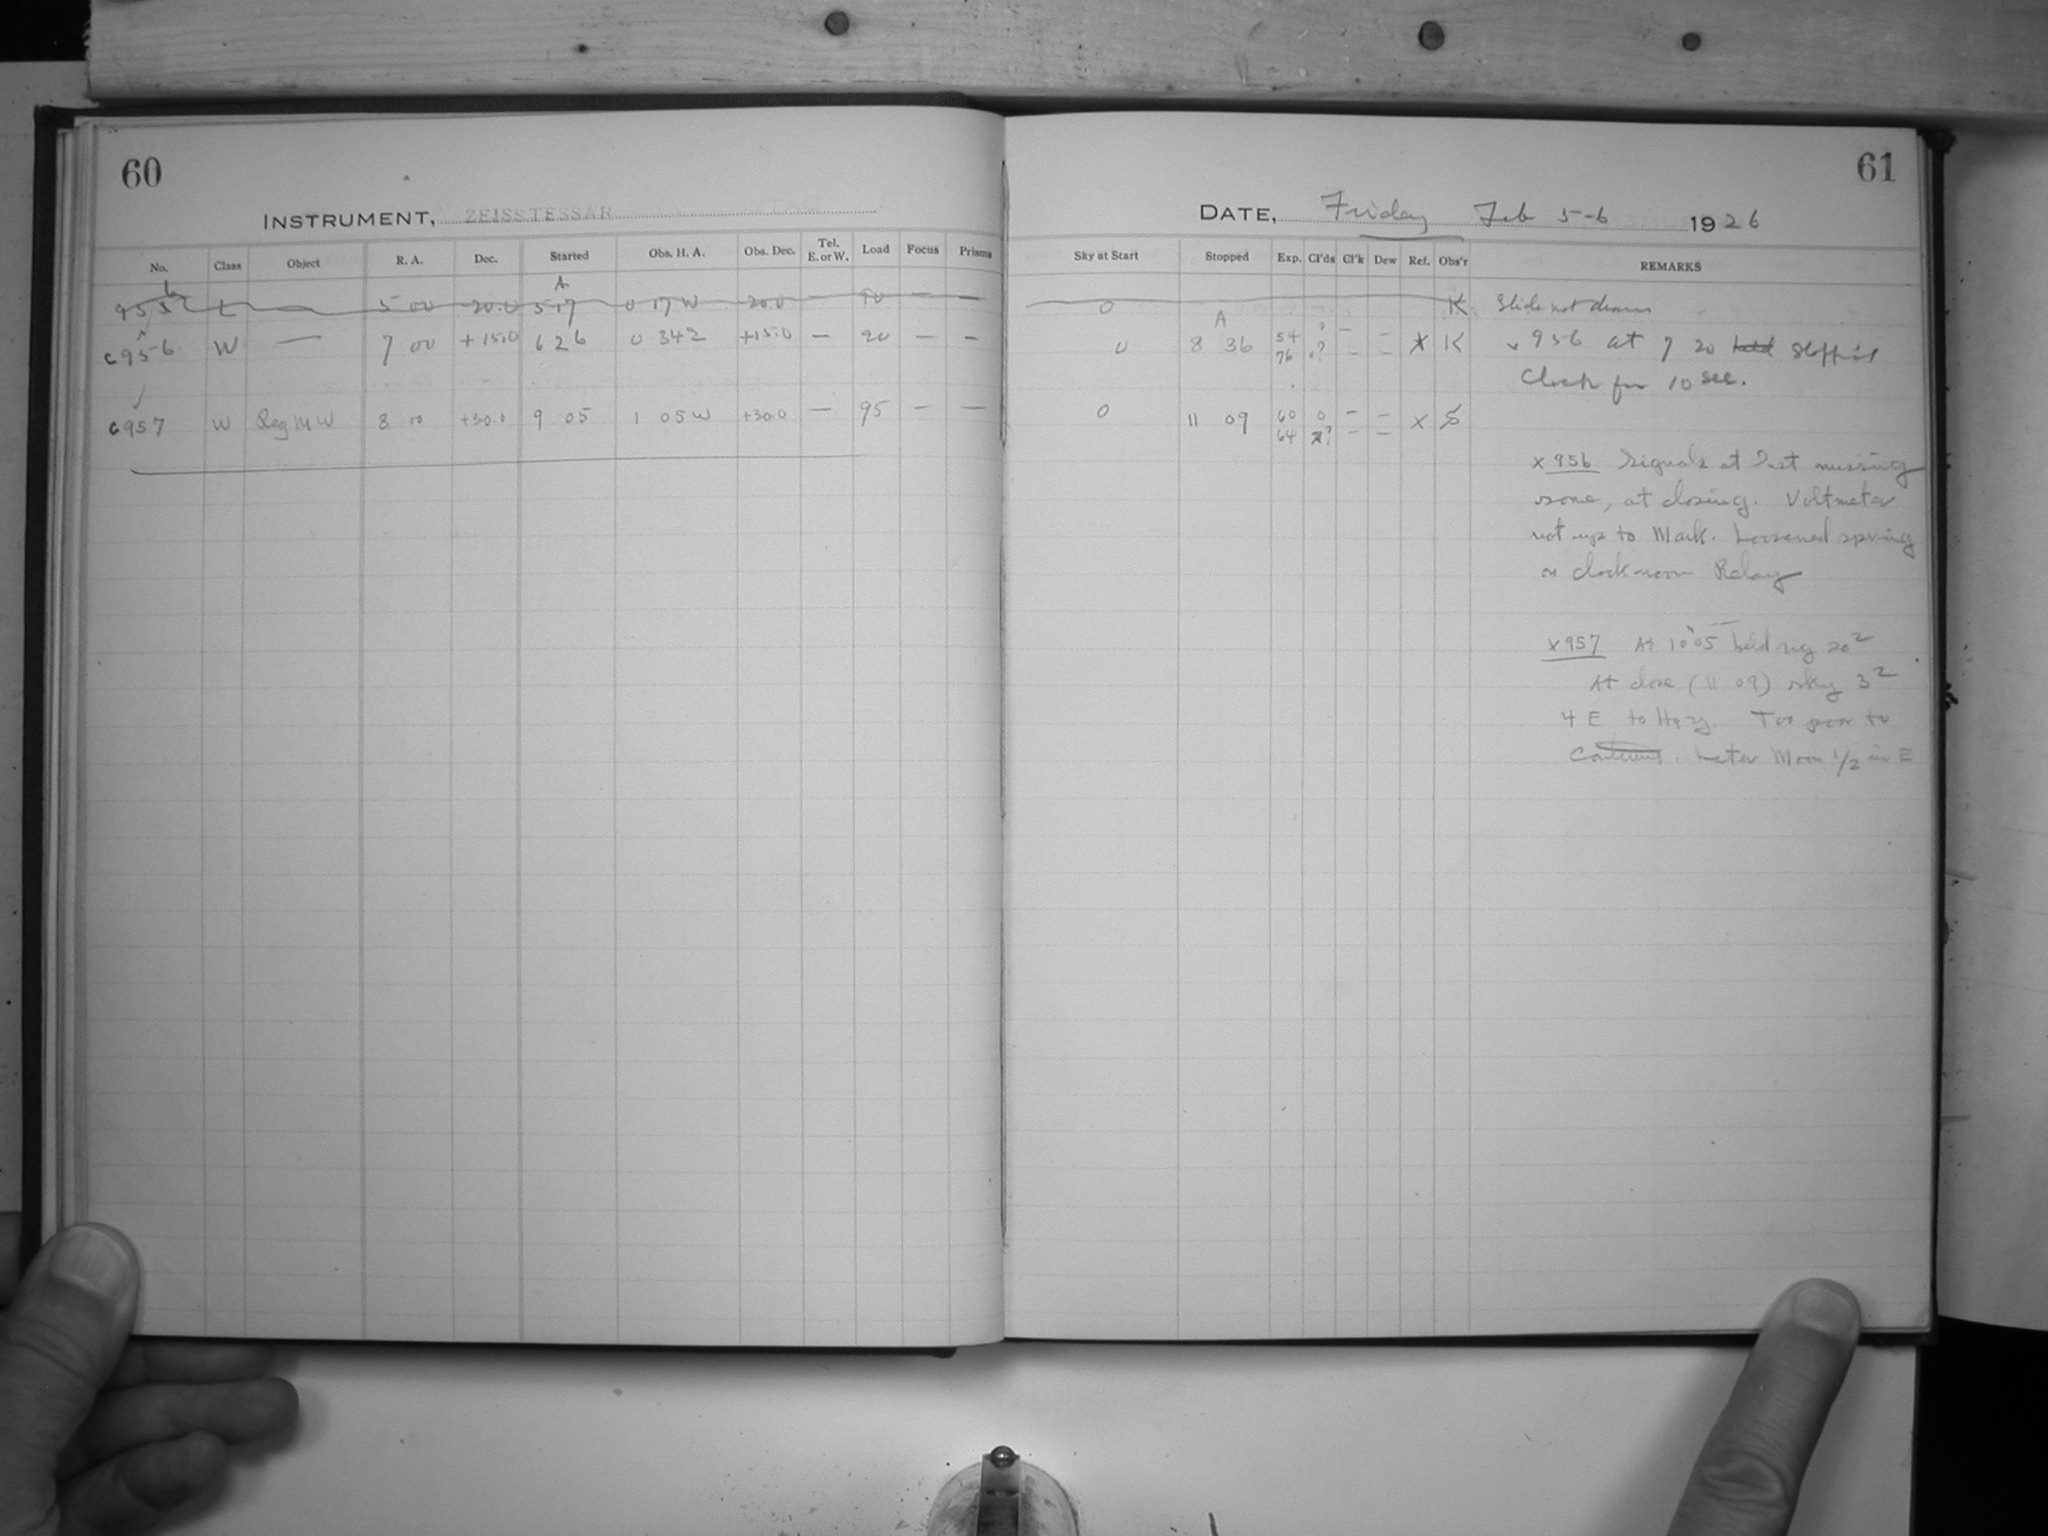 60
INSTRUMENT, ZEISS TESSAR
No. Class Object R. A. Dec. Started Obs. H. A. Obs. Dec. Tel. E. or W. Load Focus Prisms
A
L 5 00 -20.0 5 17 0 17 W -20.0 90 — —
c956 W — 7 00 +15.0 6 26 0 34 E +15.0 — 90 — —
c957 W Reg 14 W 8 00 +30.0 9 05 1 05 W +30.0 — 95 — —
61
DATE, Friday Feb 5-6 1926
Sky at Start Stopped Exp. Cl'ds Cl'k Dew Ref. Obs'r REMARKS
0 K Slide not drawn
A
0 8 36 54 ? – – X K 956 at 7 20 held stopped
76 ? – –
Clock for 10 sec.
0 11 09 60 0 – – X S
64 ? – –
x 956 Signals at last missing
some, at closing. Voltmeter
not up to Mark. Loosened spring
on clock-room Relay
x957 At 10 05 held rig 20
At close (11 09) sky 3
4 E to Hazy. Too poor to
Continue. Later Moon 1/2 in E